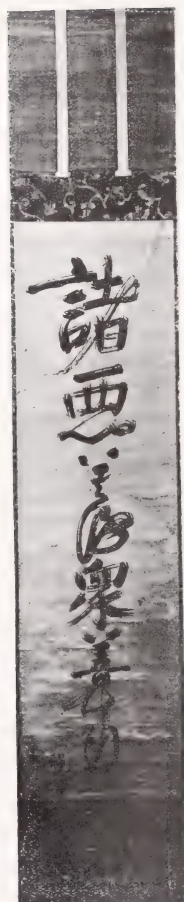 諸悪莫作衆善奉行